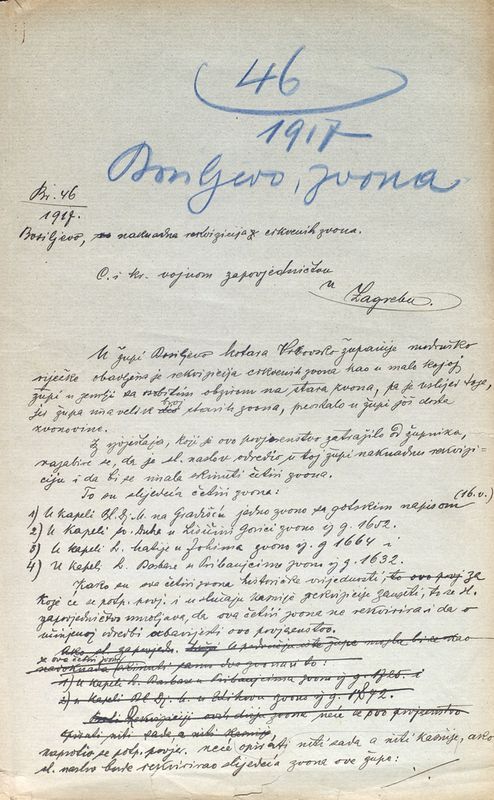 46
1917
Bosiljevo, zvona
Br. 46
1917.
Bosiljevo, naknadna rekvizicija crkvenih zvona.
C. i kr. vojnom zapovjedničtvu
u
Zagrebu.
U župi Bosiljevo kotara Vrbovsko županije modruško
riječke obavljena je rekvizicija crkvenih zvona kao u malo kojoj
župi u zemlji sa osobitim obzirom na stara zvona, pa je uslijed toga,
jer župa ima velik broj starih zvona, preostalo u župi još dosta
zvonovine.
Iz izvještaja, koji je ovo povjerenstvo zatražilo od župnika,
razabire se, da je sl. naslov odredio u toj župi naknadnu rekvizi-
ciju i da bi se imala skinuti četiri zvona.
To su slijedeća četiri zvona:
1) U kapeli Bl. Dj. M. na Gradišću jedno zvono sa gotskim napisom (16. v.)
2) U kapeli sv. Duha u Gorici zvono iz g. 1602.
3) U kapeli s. Matije u zvono iz g. 1664 i
4) U kapeli s. Barbare u zvono iz g. 1632.
Kako su ova četiri zvona historičke vrijednosti, to ovo povj. za
koje će se potp. povj. i u slučaju kasnije rekvizicije zauzeti, to se sl.
zapovjedničtvo umoljava, da ova četiri zvona ne rekvirira i da o
učinjenoj odredbi obavijesti ovo povjerenstvo.
Ako sl. zapovjed.
za ova četiri zvona
samo dva zvona i to:
1) u kapeli s. Barbare u zvono iz g. i
2) u kapeli Bl. Dj. M. u zvono iz g. 1872.
Rekviziciji zvona neće se ovo povjerenstvo
opirati niti sada a niti kasnije,
naprotiv se potp. povjer. neće opirati niti sada a niti kasnije, ako
sl. naslov bude rekvirirao slijedeća zvona ove župe: